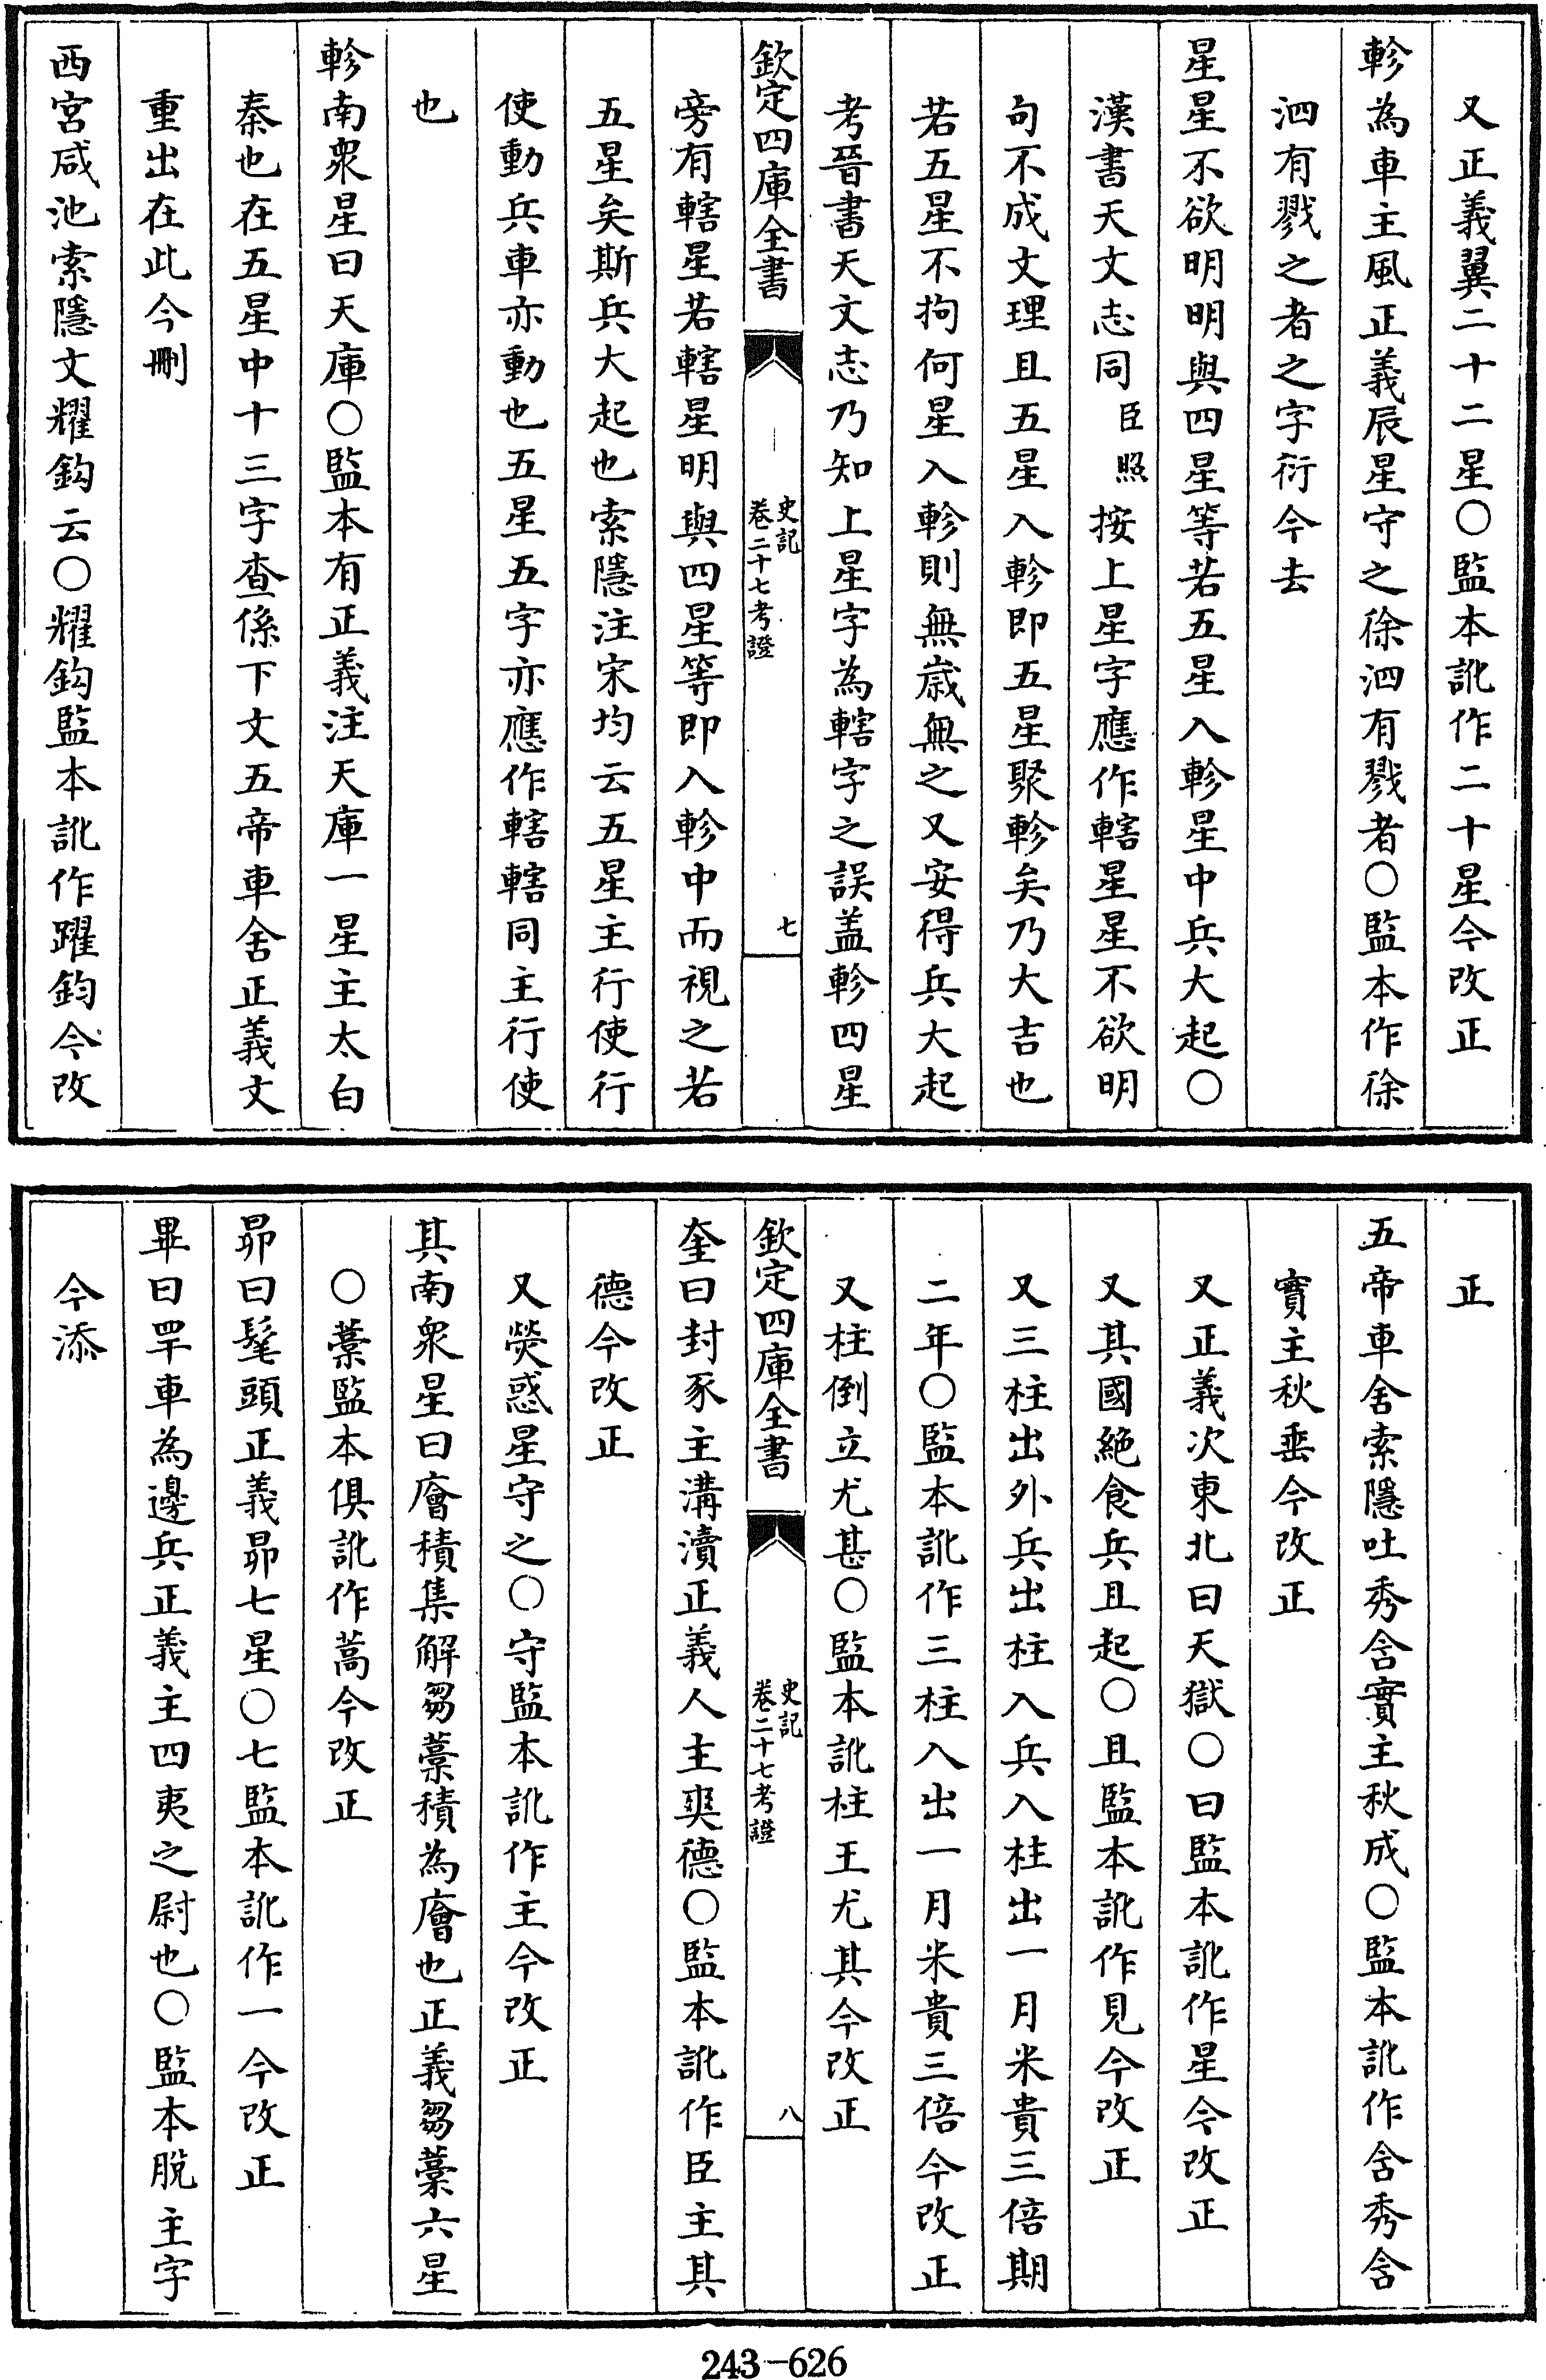 又正義翼二十二星〇監本訛作二十星今改正
軫為車主風正義辰星守之徐泗有戮者〇監本作徐
泗有戮之者之字衍今去
星星不欲明明與四星等若五星入軫星中兵大起〇
漢書天文志同臣照按上星字應作轄星星不欲明
句不成文理且五星入軫即五星聚軫矣乃大吉也
若五星不拘何星入軫則無歲無之又安得兵大起
考晉書天文志乃知上星字為轄字之誤盖軫四星
欽定四庫全書
史記
卷二十七考證
七
旁有轄星若轄星明與四星等即入軫中而視之若
五星矣斯兵大起也索隱注宋均云五星主行使行
使動兵車亦動也五星五字亦應作轄轄同主行使
也
軫南衆星曰天庫〇監本有正義注天庫一星主太白
秦也在五星中十三字查係下文五帝車舍正義文
重出在此今刪
西宮咸池索隱文耀鈎云〇耀鈎監本訛作躍鈞今改
正
五帝車舍索隱吐秀含實主秋成〇監本訛作含秀含
實主秋垂今改正
又正義次東北曰天獄〇曰監本訛作星今改正
又其國絶食兵且起〇且監本訛作見今改正
又三柱出外兵出柱入兵入柱出一月米貴三倍期
二年〇監本訛作三柱入出一月米貴三倍今改正
又柱倒立尤甚〇監本訛柱王尤其今改正
欽定四庫全書
史記
卷二十七考證
八
奎曰封豕主溝瀆正義人主爽德〇監本訛作臣主其
德今改正
又熒惑星守之〇守監本訛作主今改正
其南衆星曰廥積集解芻藁積為廥也正義芻藁六星
〇藁監本俱訛作蒿今改正
昴曰髦頭正義昴七星〇七監本訛作一今改正
畢曰罕車為邊兵正義主四夷之尉也〇監本脫主字
今添
243-626